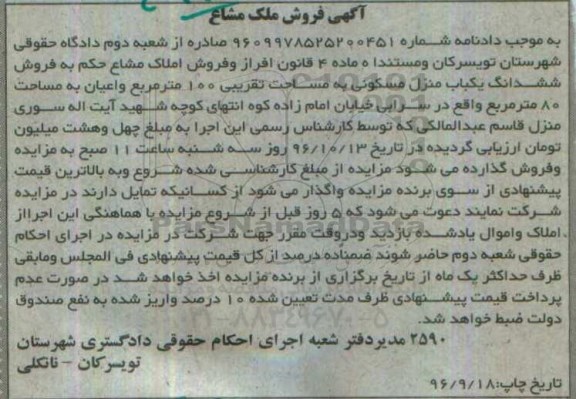 آگهی فروش ملک مشاع
به موجب دادنامه شماره ۹۶۰۹۹۷۸۵۲۵۲۰۰۴۵۱ صادره از شعبه دوم دادگاه حقوقی
شهرستان تویسرکان ومستندا ه ماده ۴ قانون افراز وفروش املاک مشاع حکم به فروش
ششدانگ یکباب منزل مسکونی به مساحت تقریبی ۱۰۰ مترمربع واعیان به مساحت
۸۰ مترمربع واقع در سرابی خیابان امام زاده کوه انتهای کوچه شهید آیت اله سوری
منزل قاسم عبدالمالکی که توسط کارشناس رسمی این اجرا به مبلغ چهل وهشت میلیون
تومان ارزیابی گردیده در تاریخ ۹۶/۱۰/۱۳ روز سه شنبه ساعت ۱۱ صبح به مزایده
وفروش گذارده می شود مزایده از مبلغ کارشناسی شده شروع وبه بالاترین قیمت
پیشنهادی از سوی برنده مزایده واگذار می شود از کسانیکه تمایل دارند در مزایده
شرکت نمایند دعوت می شود که ۵ روز قبل از شروع مزایده با هماهنگی این اجرااز
املاک واموال یادشده بازدید ودروقت مقرر جهت شرکت در مزایده در اجرای احکام
حقوقی شعبه دوم حاضر شوند ضمناده درصد از کل قیمت پیشنهادی فی المجلس ومابقی
ظرف حداکثر یک ماه از تاریخ برگزاری از برنده مزایده اخذ خواهد شد در صورت عدم
پرداخت قیمت پیشنهادی ظرف مدت تعیین شده ۱۰ درصد واریز شده به نفع صندوق
دولت ضبط خواهد شد.
۲۵۹۰ مدیردفتر شعبه اجرای احکام حقوقی دادگستری شهرستان
تویسرکان - نانکلی
تاریخ چاپ:۹۶/۹/۱۸
ParsNamadData
۰۲۱-۸۸۳۴۹۶۷۰-۵